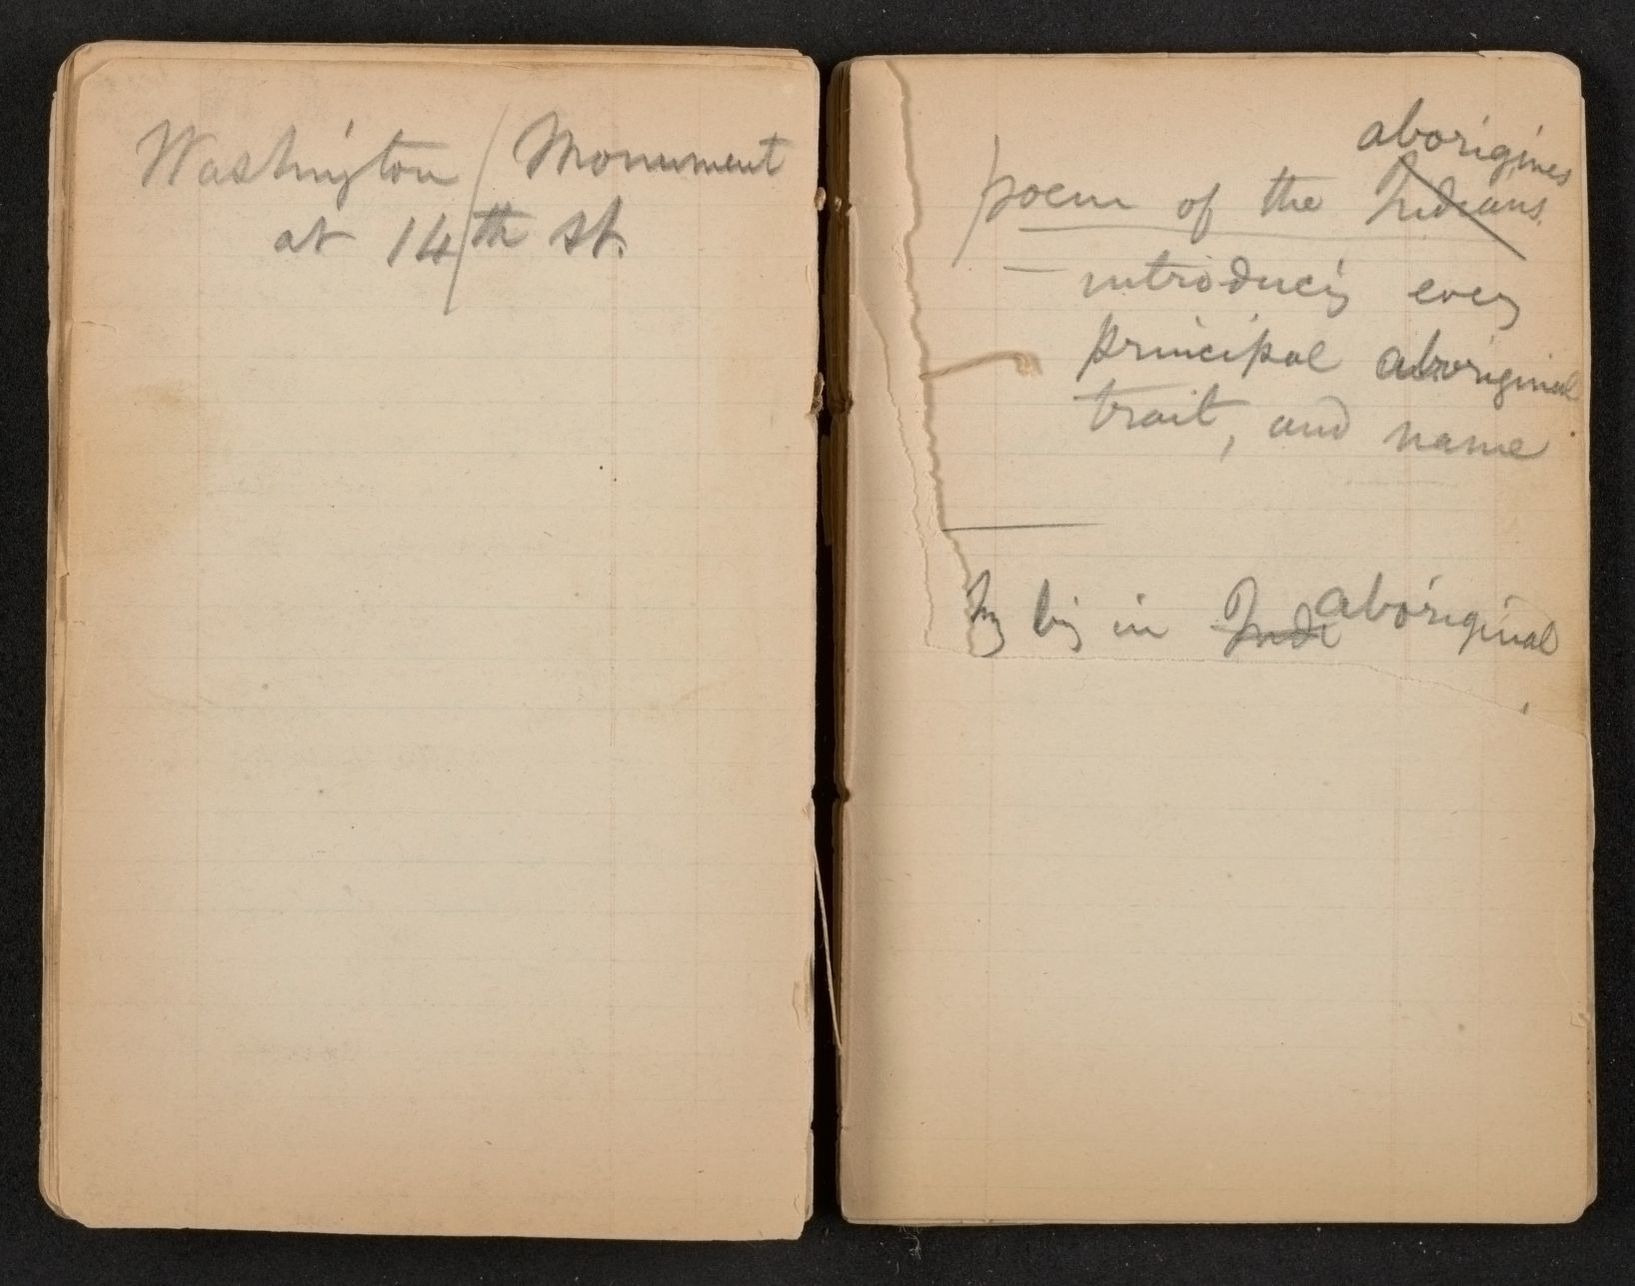 Washington Monument
at 14th st.
aborigines
poem of the Indians.
— introducing every
principal aboriginal
trait, and name
big in Indi aboriginal